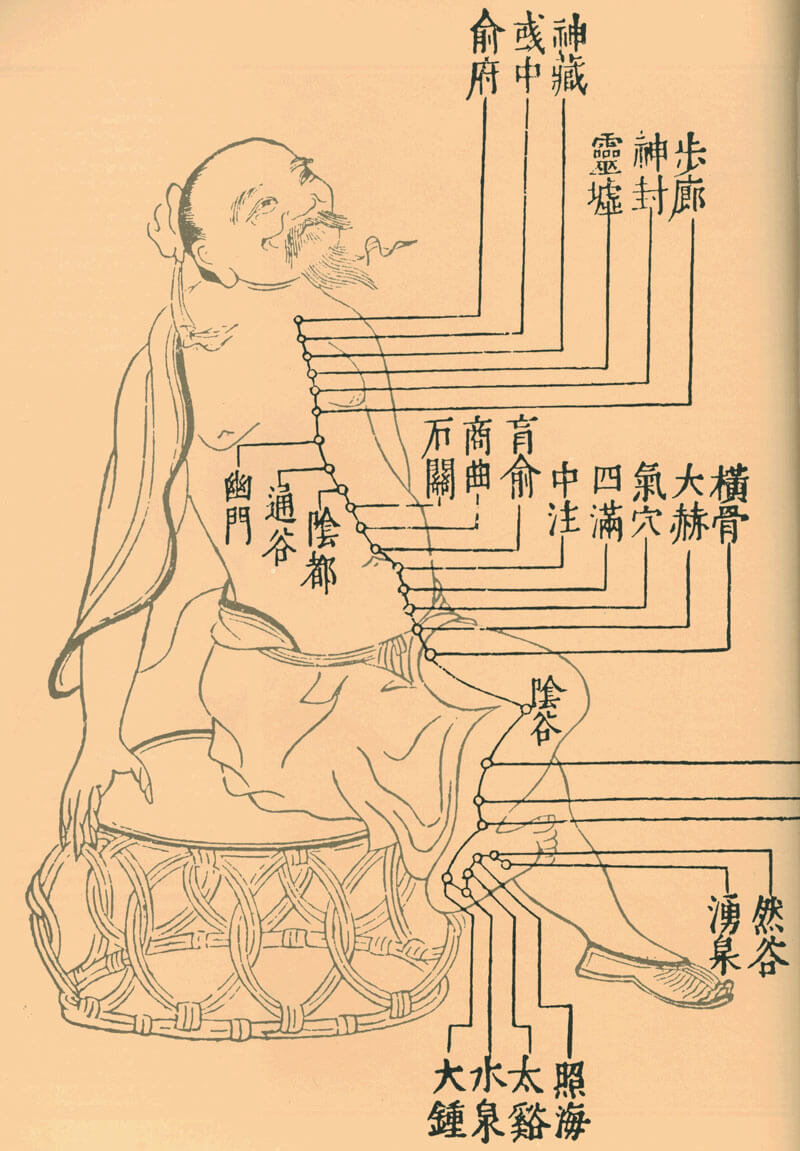 神藏
彧中
俞府
步廊
神封
靈墟
橫骨
大赫
氣穴
四滿
中注
肓俞
商曲
石關
陰都
通谷
幽門
陰谷
然谷
湧泉
照海
太谿
水泉
大鍾